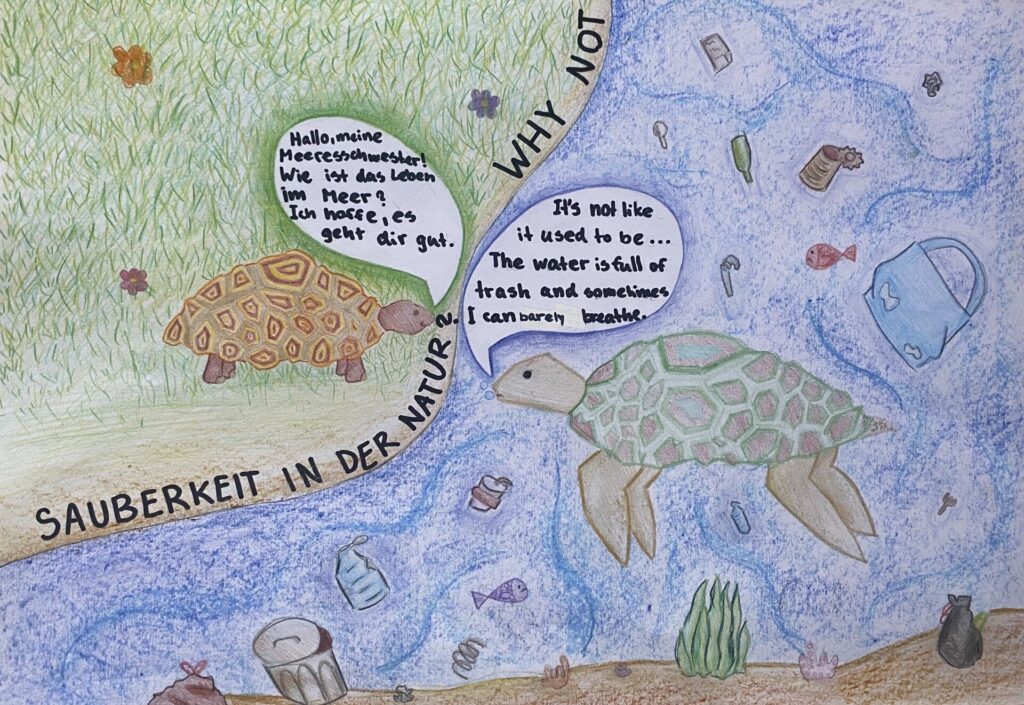 Hallo, meine
Meeresschwester!
Wie ist das Leben
im Meer?
Ich hoffe, es
geht dir gut.
It's not like
it used to be...
The water is full of
trash and sometimes
I can barely breathe.
SAUBERKEIT IN DER NATUR? WHY NOT